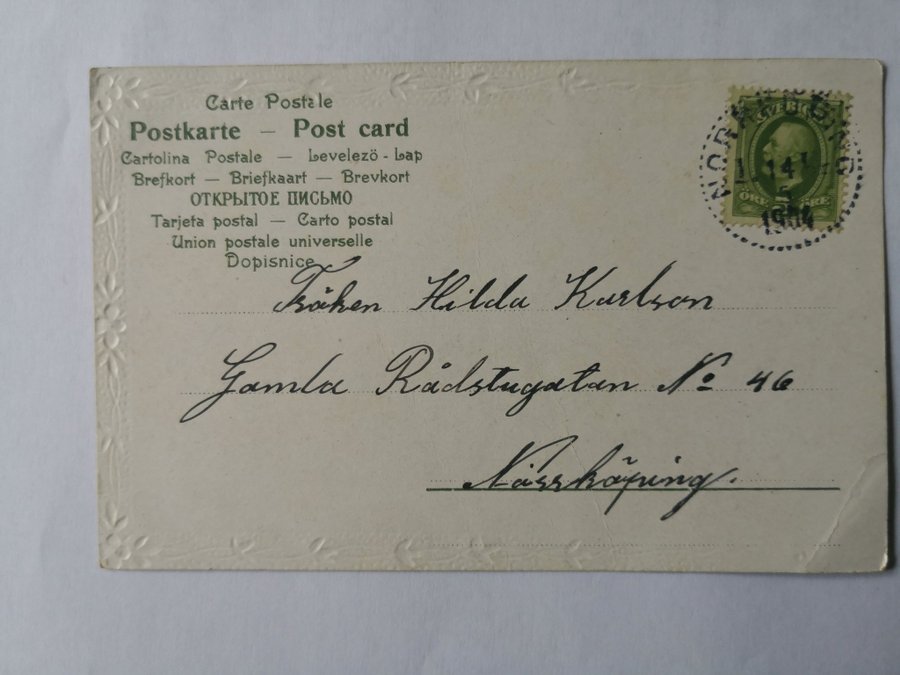 Carte Postale
Postkarte — Post card
Cartolina Postale — Levelező - Lap
Brefkort — Briefkaart — Brevkort
ОТКРЫТОЕ ПИСЬМО
Tarjeta postal — Carto postal
Union postale universelle
Dopisnice
NORRKÖPING
14
5
1904
SVERIGE
ÖRE ÖRE
Fröken Hilda Karlson
Gamla Rådstugatan No 46
Norrköping.